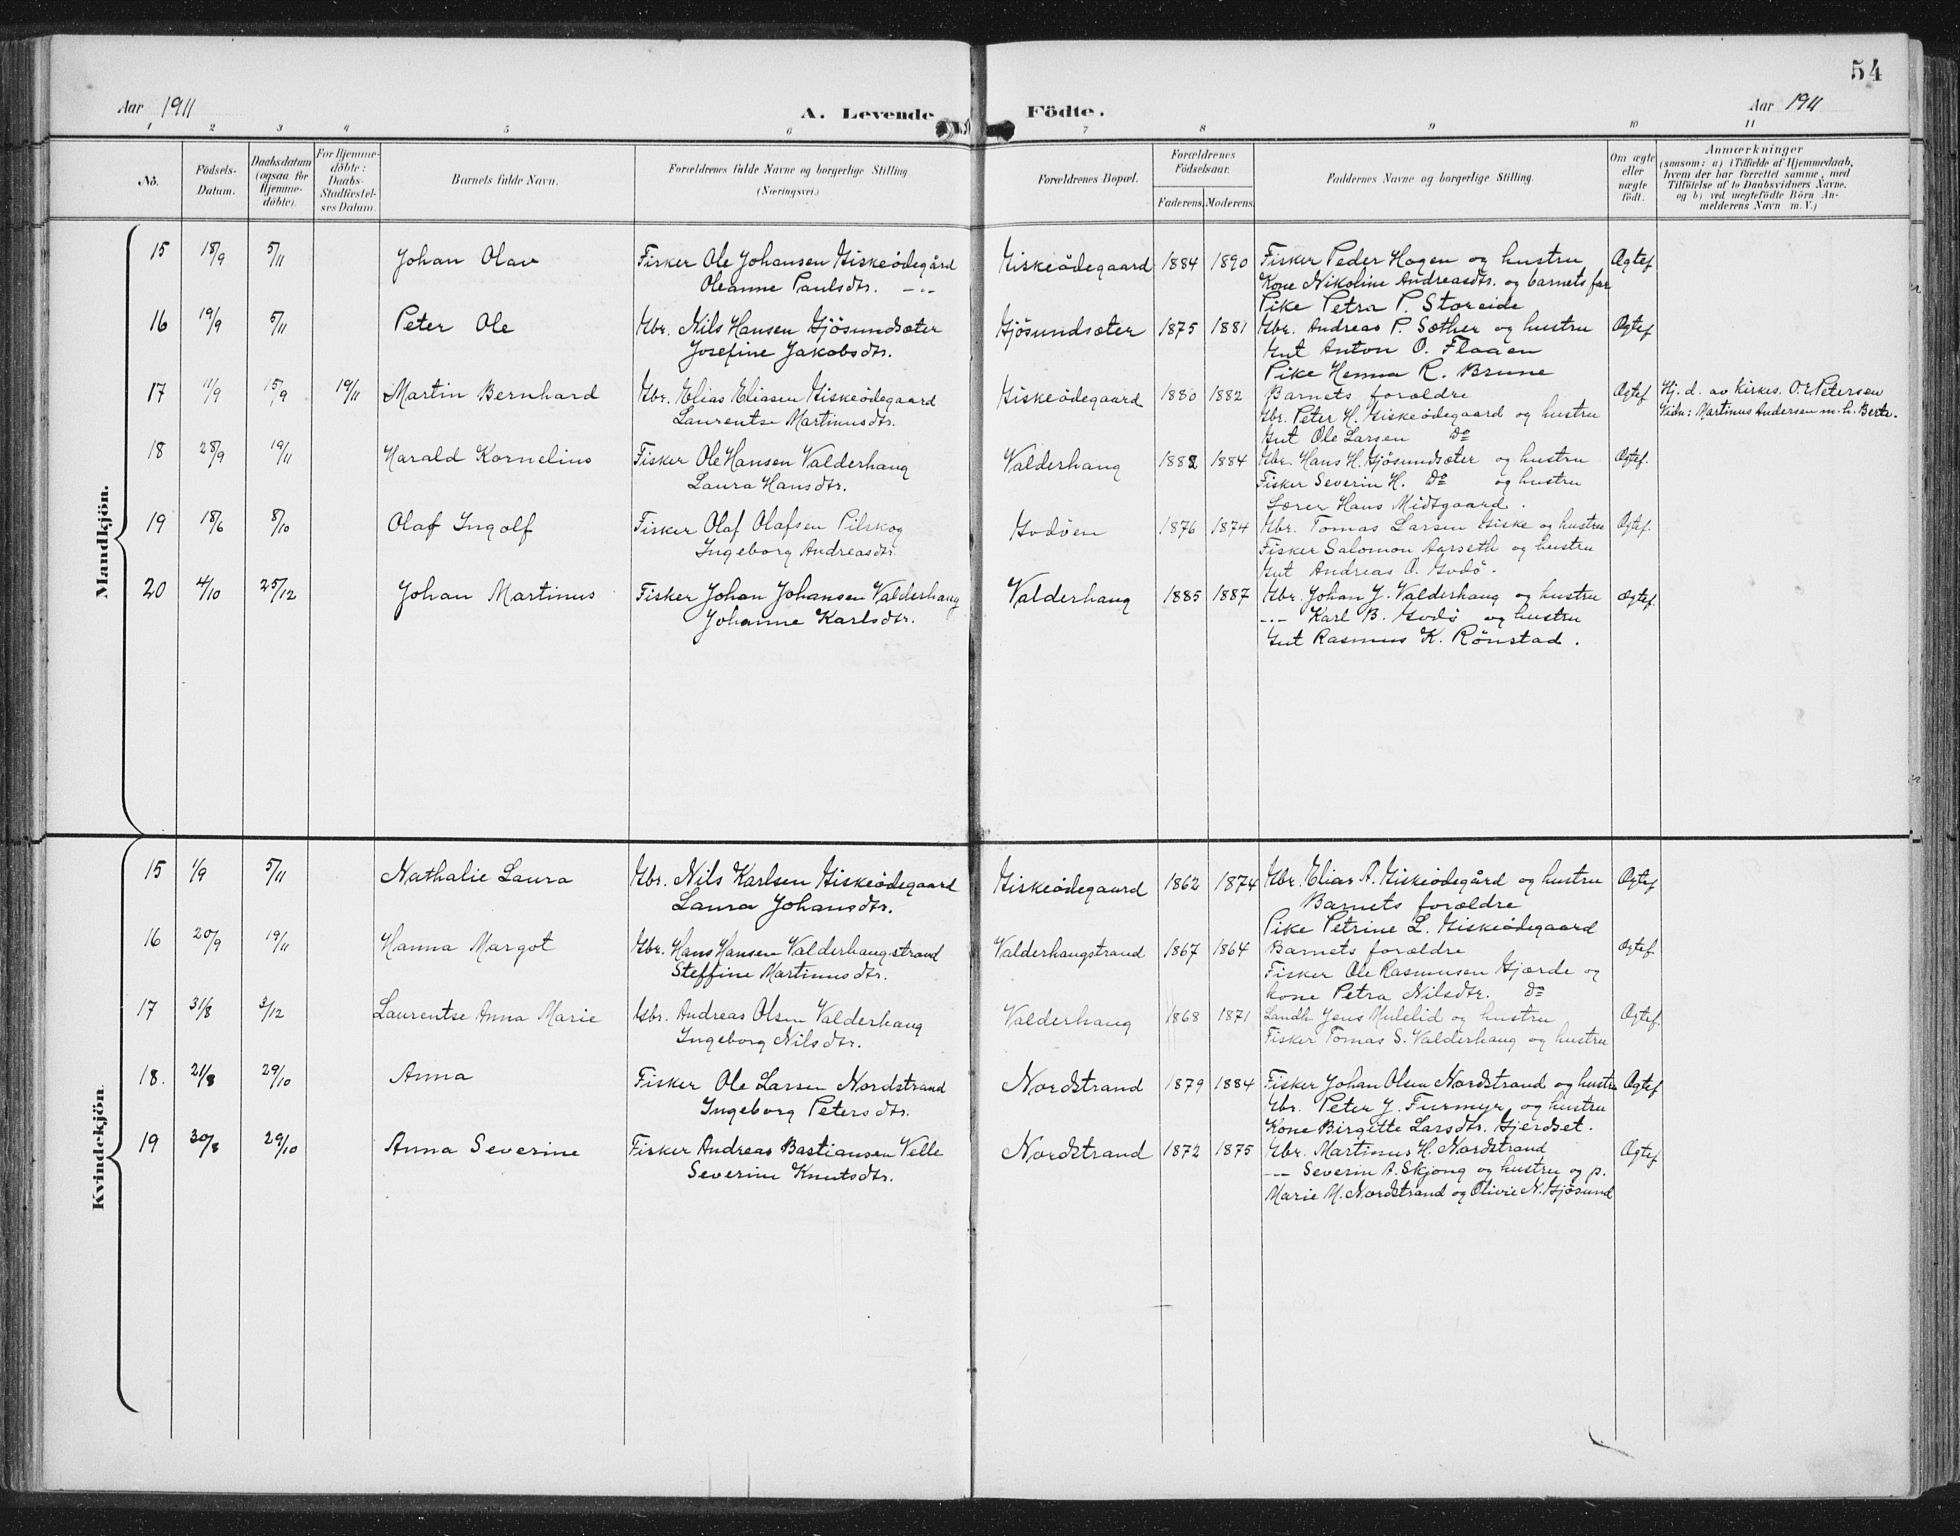 54
Aar 1911 A. Levende Födte. Aar 1911
1 2 3 4 5 6 7 8 9 10 11
No. Födsels-Datum. Daabsdatum (ogsaa for Hjemme-döbte). For Hjemme-döbte: Daabs-Stadfæstel-ses Datum. Barnets fulde Navn. Forældrenes fulde Navne og borgerlige Stilling (Næringsvei.) Forældrenes Bopæl. Forældrenes Födselsaar. Faderens. Moderens. Faddernes Navne og borgerlige Stilling. Om ægte eller uægte födt. Anmærkninger (saasom: a) i Tilfælde af Hjemmedaab, hvem der har forrettet samme, med Tilföielse af to Daabsvidners Navne, og b) ved uægtefödte Börn An-melderens Navn m. V.)
Mandkjön.
15 18/9 5/11 Johan Olav Fisker Ole Johansen Giskeödegård Giskeödegaard 1884 1890 Fisker Peder Hagen og hustru Ægtef
Oleanne Paulsdtr. -"- Kone Nikoline Andreasdtr. og barnets far
Pike Petra P. Storeide
16 19/9 5/11 Peter Ole Gbr. Nils Hansen Gjösundsæter Gjösundsæter 1875 1881 Gbr. Andreas P. Sæther og hustru Ægtef
Josefine Jakobsdtr. Gut Anton O. Flaaen
Pike Hemma R. Brune
17 11/9 15/9 19/11 Martin Bernhard Gbr. Elias Eliasen Giskeödegaard Giskeödegaard 1880 1882 Barnets forældre Ægtef Hj. d. av Kirkes. O. E. Petersen
Laurentse Martinusdtr. Gbr. Peter H. Giskeödegaard og hustru Vidn: Martinus Andersen m. h. Berte.
Gut Ole Larsen do
18 28/9 19/11 Harald Kornelius Fisker Ole Hansen Valderhaug Valderhaug 1882 1884 Gbr. Hans H. Gjösundsæter og hustru Ægtef.
Laura Hansdtr. Fisker Severin H. do og hustru
Lærer Hans Midtgaard.
19 18/6 8/10 Olaf Ingolf Fisker Olaf Olafsen Pilskog Godöen 1876 1874 Gbr. Tomas Larsen Giske og hustru Ægtef.
Ingeborg Andreasdtr. Fisker Salomon Aarseth og hustru
Gut Andreas O. Godö.
20 4/10 25/12 Johan Martinus Fisker Johan Johansen Valderhaug Valderhaug 1885 1887 Gbr. Johan J. Valderhaug og hustru Ægtef.
Johanne Karlsdtr. -"- Karl B. Godö og hustru
Gut Rasmus K. Rönstad.
Kvindekjön
15 1/9 5/11 Nathalie Laura Gbr. Nils Karlsen Giskeödegaard Giskeödegaard 1862 1874 Gbr. Elias A. Giskeödegård og hustru Ægtef
Laura Johansdtr. Barnets forældre
Pike Petrine L. Giskeödegaard
16 20/9 19/11 Hanna Margot Gbr. Hans Hansen Valderhaugstrand Valderhaugstrand 1867 1864 Barnets forældre Ægtef.
Steffine Martinusdtr. Fisker Ole Rasmussen Gjærde og
kone Petra Nilsdtr. do
17 31/8 3/12 Laurentse Anna Marie Gbr. Andreas Olsen Valderhaug Valderhaug 1868 1871 Landh. Jens Mulelid og hustru Ægtef.
Ingeborg Nilsdtr. Fisker Tomas S. Valderhaug og hustru
18. 21/8 29/10 Anna Fisker Ole Larsen Nordstrand Nordstrand 1879 1884 Fisker Johan Olsen Nordstrand og hustru Ægtef
Ingeborg Petersdtr. Gbr. Peter J. Furmyr og hustru
Kone Birgitte Larsdtr. Gjerdset.
19 30/8 29/10 Anna Severine Fisker Andreas Bastiansen Velle Nordstrand 1872 1875 Gbr. Martinus H. Nordstrand Ægtef
Severine Knutsdtr. -"- Severin A. Skjong og hustru og p.
Marie M. Nordstrand og Olivie N. Gjösund